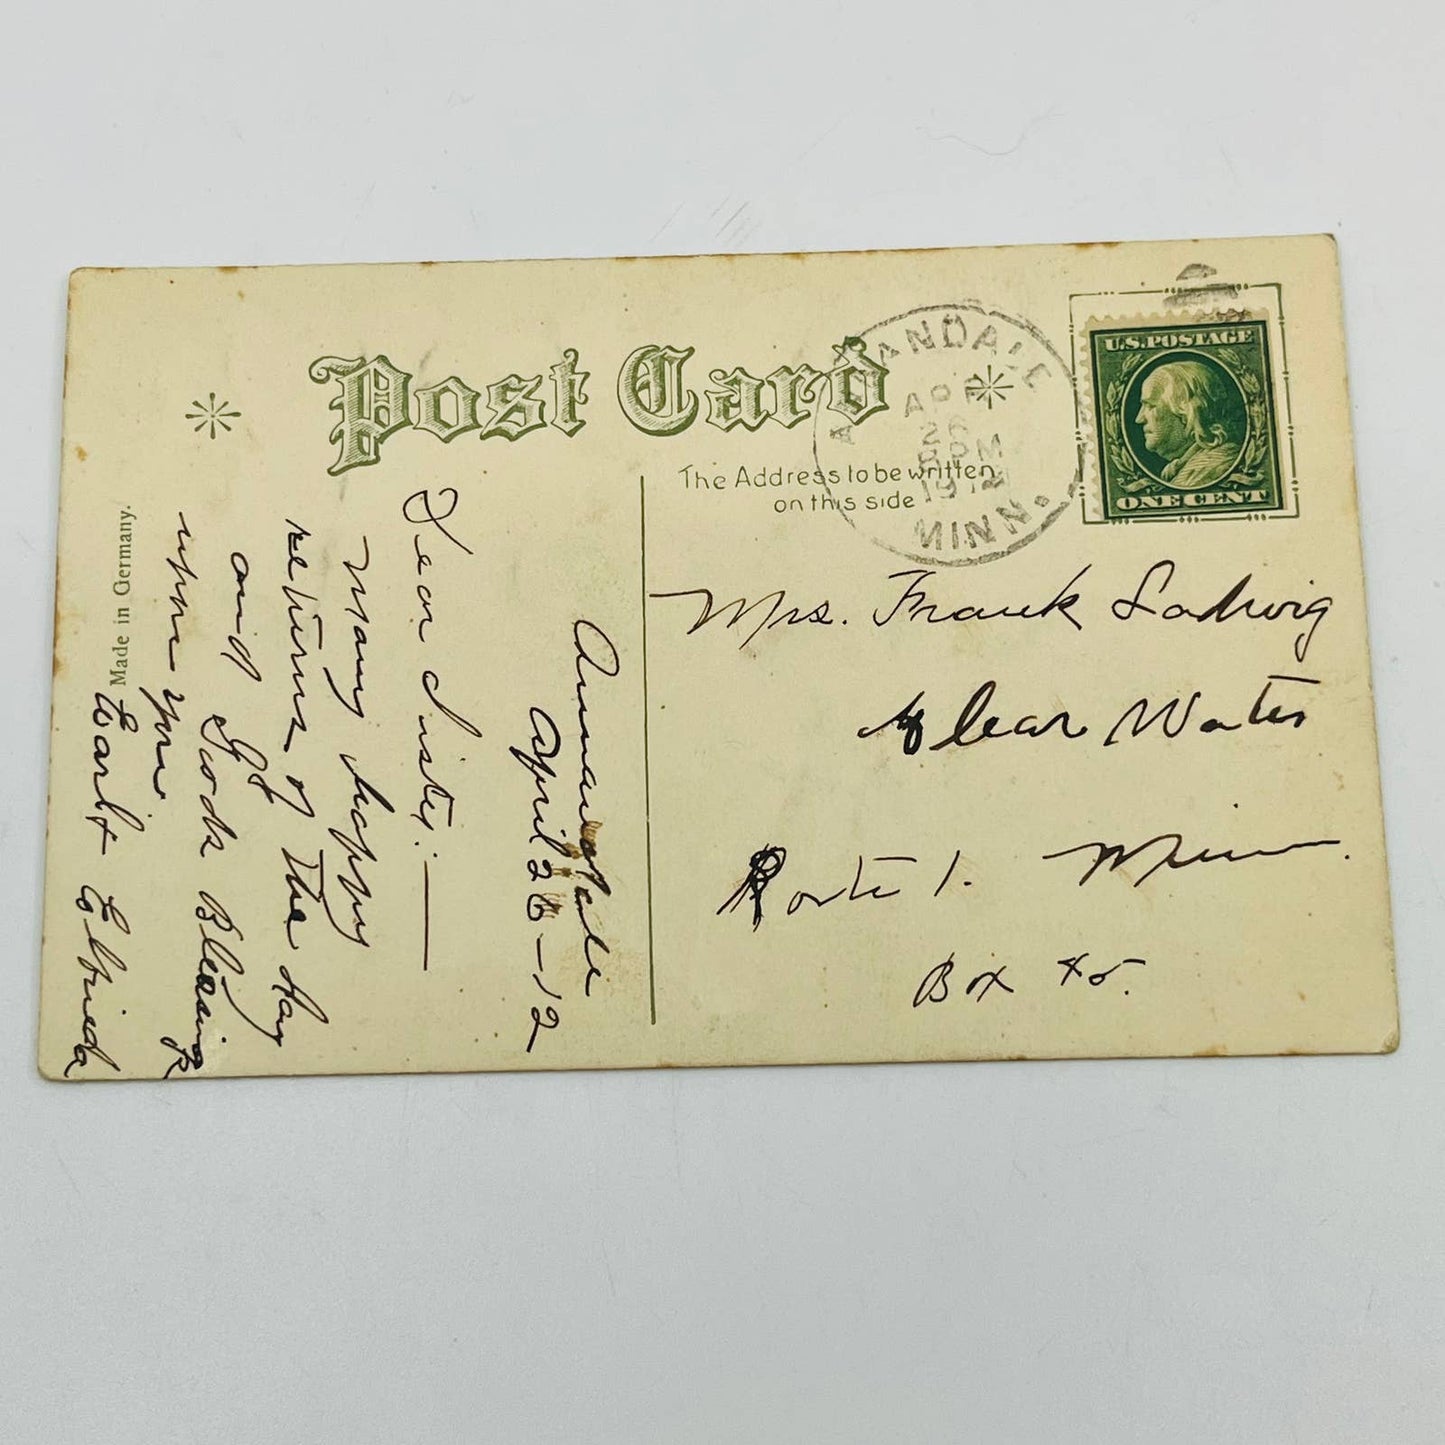 Post Card
The Address to be written
on this side
ANNANDALE
APR
26
PM
1912
MINN.
U.S. POSTAGE
ONE CENT
Made in Germany.
Annandale
April 26 - 12
Dear Sister: —
Many happy
returns of the day
and Gods Blessing
upon you
Earl & Elfrieda
Mrs. Frank Ladwig
Clear Water
Route 1. Minn.
Box 45.